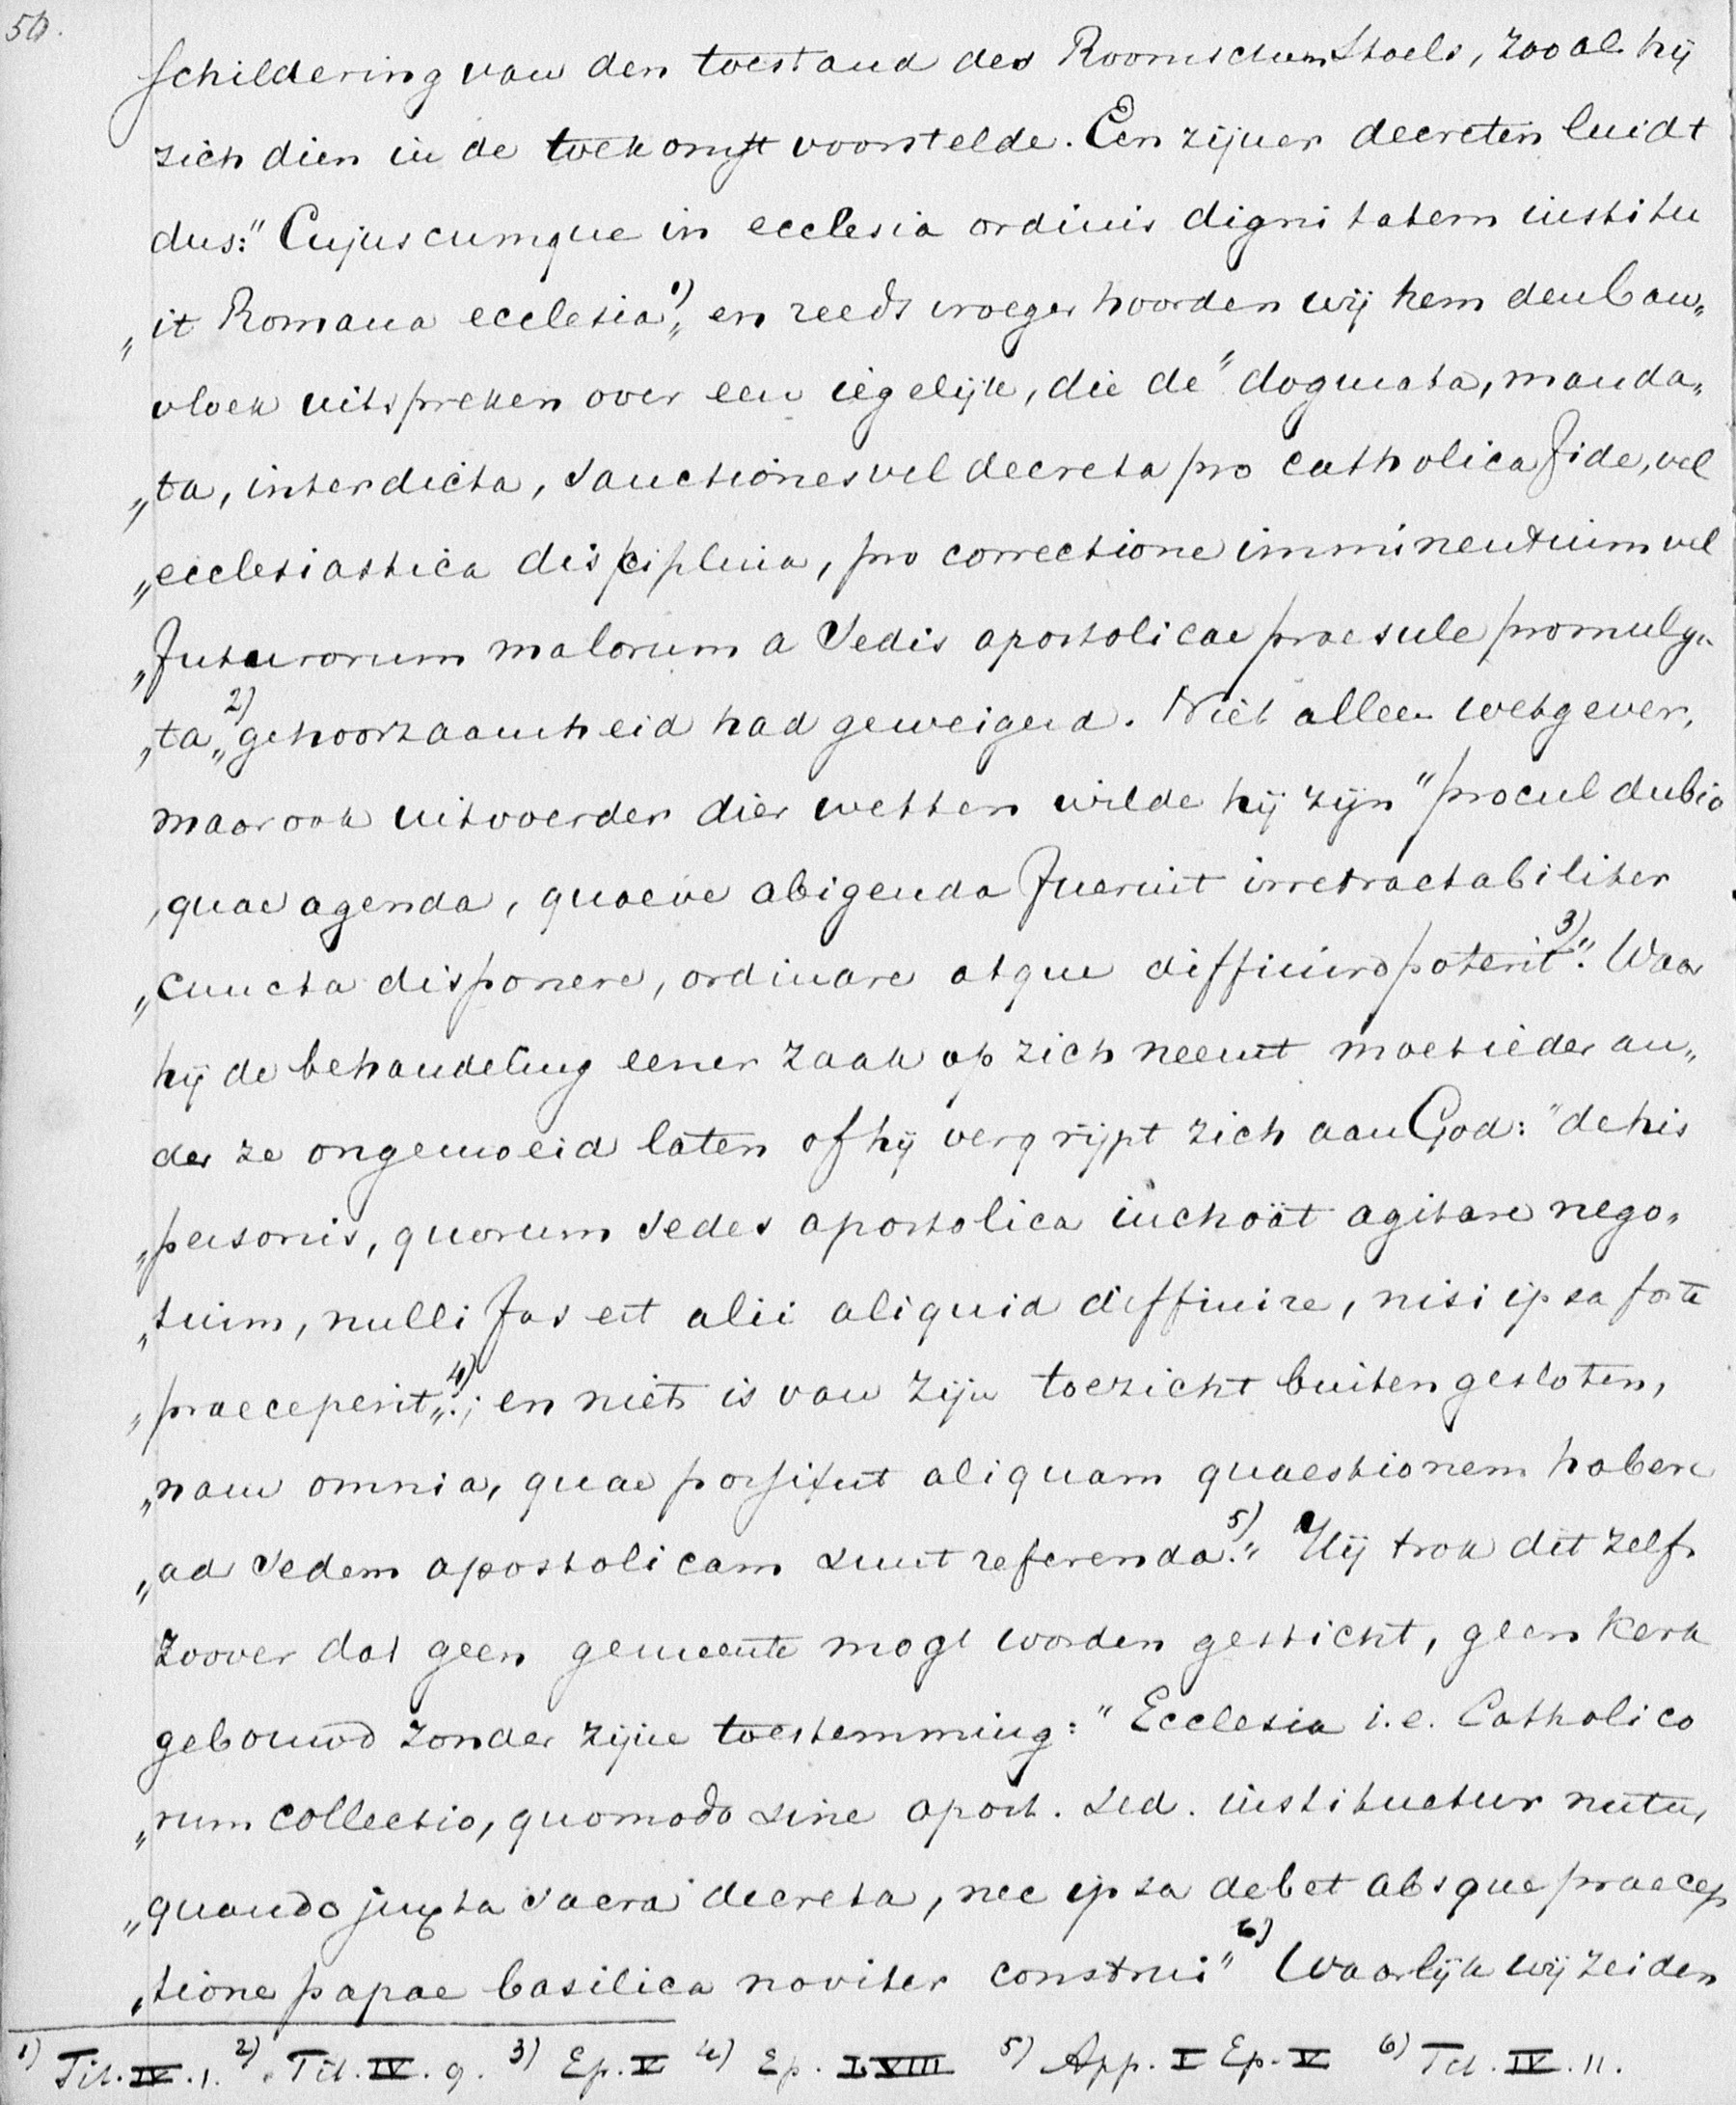 50.
schildering van den toestand des Roomschen Stoels, zooal hij
zich dien in de toekomst voorstelde. Een zijner decreten luidt
dus: " Cujuscumque in ecclesia ordinis dignitatem institu
„it Romana ecclesia 1)„ en reeds vroeger hoorden wij hem den ban„
vloek uitspreken over een iegelijk, die de " dogmata, manda„
„ta, interdicta, sanctiones vel decreta pro catholica fide, vel
„ecclesiastica disciplina, pro correctione imminentium vel
„futurorum malorum a Sedis apostolicae praesule promulga
„ta„ 2) gehoorzaamheid had geweigerd. Niet alleen wetgever,
maar ook uitvoerder dier wetten wilde hij zijn " procul dubio
„quae agenda, quaeve abigenda fuerint irretractabiliter
„cuncta disponere, ordinare atque diffinire poterit 3)." Waar
hij de behandeling eener zaak op zich neemt moet ieder an„
der ze ongemoeid laten of hij vergrijpt zich aan God: " de his
„personis, quorum sedes apostolica inchoät agitare nego„
„tium, nulli fas est alii aliquid diffinire, nisi ipsa forte
„praeceperit„ 4).; en niets is van zijn toezicht buitengesloten,
„nam omnia, quae possunt aliquam quaestionem habere
„ad Sedem apostolicam sunt referenda 5)." Hij trok dit zelfs
zoover dat geen gemeente mogt worden gesticht, geen kerk
gebouwd zonder zijne toestemming: " Ecclesia i.e. Catholico
„rum collectio, quomodo sine apost. sed. instituetur nutu,
„quando juxta sacra decreta, nec ipsa debet absque praecep
„tione papae basilica noviter construi" 6) Waarlijk wij zeiden
1) Tit. IV. 1. 2) Tit. IV. 9. 3) Ep. V 4) Ep. LVIII 5) App. I Ep. V 6) Tit. IV. 11.